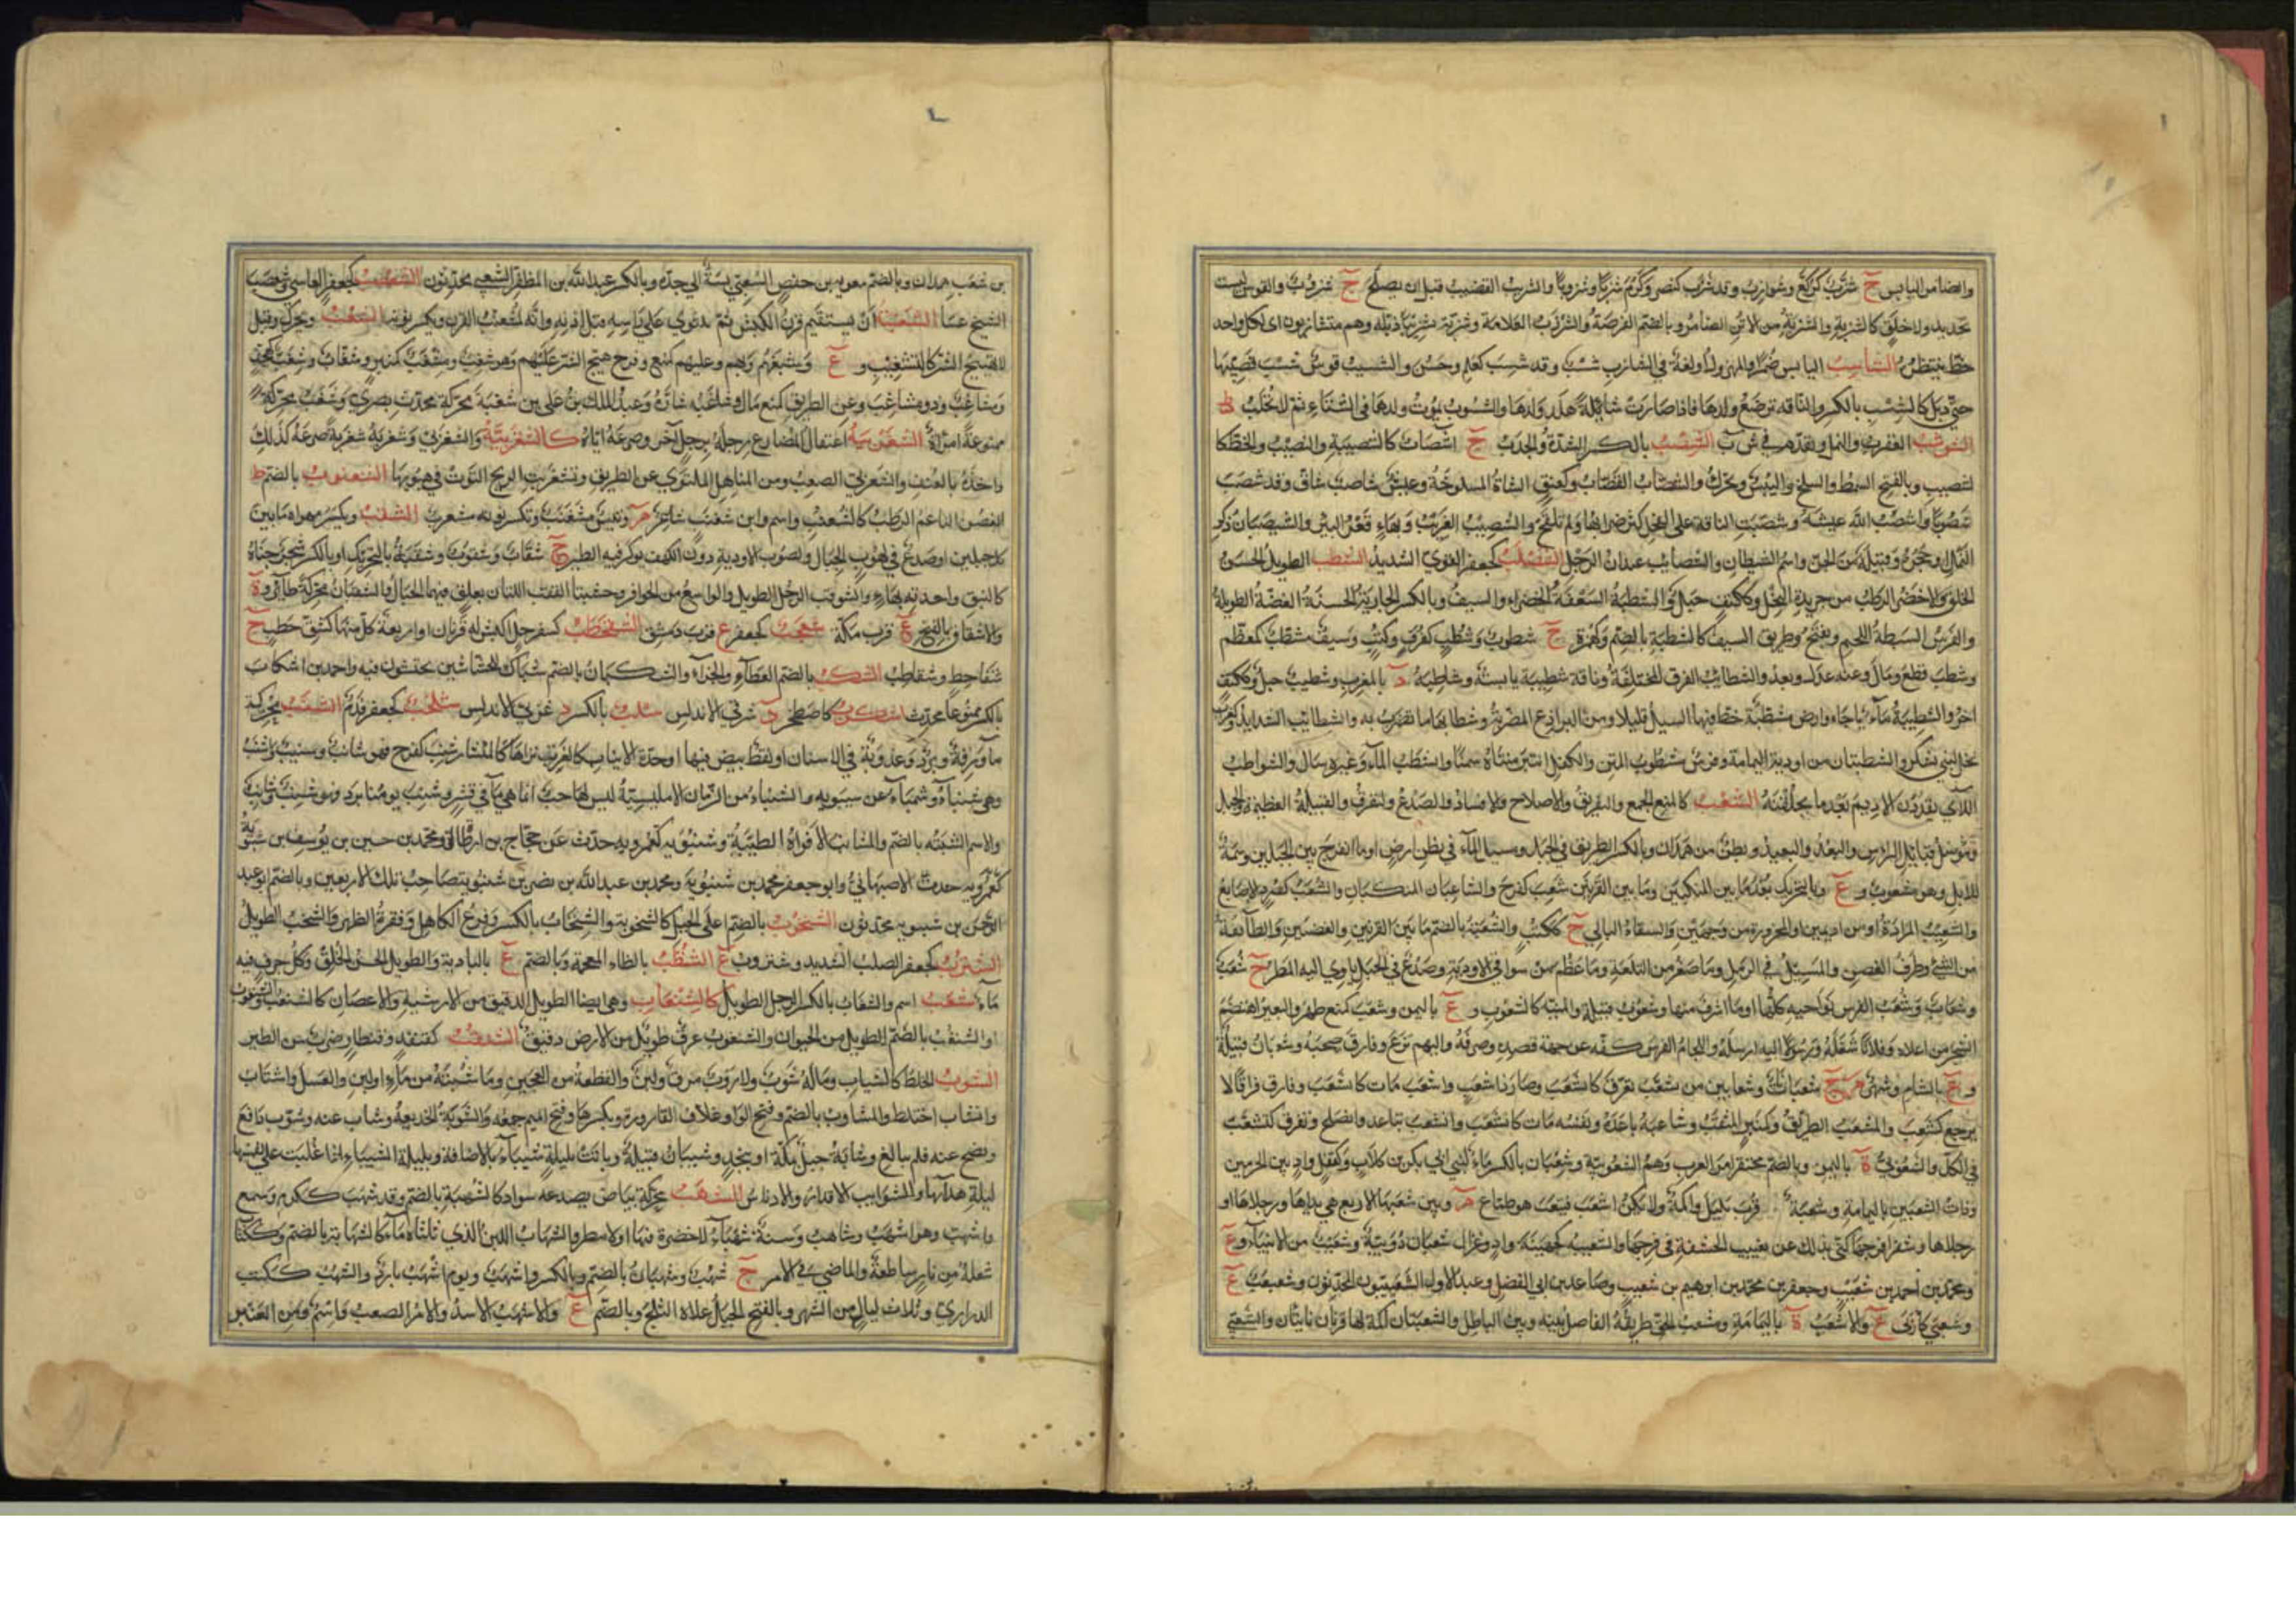 والضامر اليابس ج شزّب كركّع وشوازب وقد شزب كنصر وكرم شزبا وشزوبا والشزيب القضيب قبل ان يصلح ج شزوب والقوس ليست
بجديد ولا خلق كالشزبة والشزبة من الاتن الضامر وبالضم الفرصة والشوزب العلامة وهم متشازبون اى لكل واحد
حظ ينتظره الشاسب اليابس ضمرا والمهزول او لغة في الشازب شسب وقد شسب كعلم وحسن والشسيب قوس شسب قضيبها
حتى ذبل كالشسب بالكسر والشسوب يموت ولدها في الشتاء ثم لا تحلب ط
الشوشب العقرب والنمل وتقدم في ش ب الشصب بالكسر الشدة والجدب ج اشصاب كالشصيبة والنصيب والحظ كا
لشصيب وبالفتح السمط والسلخ واليبس ويحرك والشصاب القصاب وكعنق الشاة المسلوخة وعيش شاصب شاق وقد شصب
شصوبا واشصب الله عيشه وشصبت الناقة على الفحل كثر ضرابها ولم تلقح والشصيب الغريب وبهاء قعر البئر والشيصبان ذكر
النمل او جحره وقبيلة من الجن واسم الشيطان والشصائب عيدان الرحل الشصلب كجعفر القوي الشديد الشطب الطويل الحسن
الخلق والاخضر الرطب من جريد النخل وككتف جبل والشطبة السعفة الخضراء والسيف وبالكسر الجارية الحسنة الغضة الطويلة
والفرس السبطة اللحم ويفتح وطريق السيف كالشطبة بالضم وكهمزة ج شطوب وشطب كغرف وكتب وسيف مشطب كمعظم
وشطب قطع ومال وعنه عدل وبعد والشطائب الفرق المختلفة وناقة شطيبة يابسة وشاطبة د بالمغرب وشطيب جبل وككتف
نخل لبني يشكر والشطبتان من اودية اليمامة وفرس مشطوب المتن والكفل انتبر متناه سمنا وانشطب الماء وغيره سال والشواطب
اللآى يقددن الاديم بعد ما يخلقنه الشعب كالمنع الجمع والتفريق والاصلاح والافساد والصدع والتفرق والقبيلة العظيمة والجبل
وموصل قبائل الراس والبعد والبعيد وبطن من همدان وبالكسر الطريق في الجبل ومسيل الماء في بطن ارض او ما انفرج بين الجبلين وسمة
للابل وهو مشعوب و ع وبالتحريك بعد ما بين المنكبين وما بين القرنين شعب كفرح والشاعبان المنكبان والشعب كصرد الاصابع
والشعيب المزادة او من اديمين او المخروزة من وجهين والسقاء البالي ج ككتب والشعبة بالضم ما بين القرنين والغصنين والطائفة
من الشئ وطرف الغصن والمسيل في الرمل وما صغر من التلعة وما عظم من سواقي الاودية وصدع في الجبل ياوي اليه المطر ج شعب
وشعاب وشعب الفرس نواحيه كلها او ما اشرف منها وشعوب قبيلة والمنية كالشعوب و ع باليمن وشعب كمنع ظهر والبعير اهتضم
الشجر من اعلاه وفلانا شغله ورسولا اليه ارسله واللجام الفرس كفه عن جهة قصده وصرفه واليهم نزع وفارق صحبه وشعبان قبيلة
و ع بالشام وشهر م ج شعبانات وشعابين من تشعب تفرق كانشعب وصار ذا شعب واشعب مات كانشعب وفارق فراقا لا
يرجع كشعب والمشعب الطريق وكمنبر المثقب وشاعبه باعده ونفسه مات كانشعب وانشعب تباعد وانصلح وتفرق كتشعب
في الكل والشعوبي ة باليمن وبالضم محتقر امر العرب وهم الشعوبية وشعبان بالكسر ماء لبني ابي بكر بن كلاب وكقفل واد بين الحرمين
وذات الشعبين باليمامة وشعبة ع قرب يليل ولا تكن اشعب فتتعب هو طماع م وبين شعبها الاربع هي يداها ورجلاها او
رجلاها وشفرا فرجها كنى بذلك عن تغييب الحشفة في فرجها والشعيبة كجهينة واد وغزال شعبان دويبة وشعيب من الانبياء و ع
ومحمد بن احمد بن شعيب وجعفر بن محمد بن ابرهيم بن شعيب وصاعد بن ابي الفضل وعبد الاول الشعيبيون المحدثون وشعبعب ع
وشعبى كاربى ع والاشعب ة باليمامة وشعب الحق طريقه الفاصل بينه وبين الباطل والشعبتان اكمة لها قرنان ناتئان والشعبي
بن شعب همدان وبالضم معوية بن حفص الشعبي نسبة الى جده وبالكسر عبد الله بن المظفر الشعبي محدثون الشعصب كجعفر العاسي وشعصب
الشيخ عسا الشعنبة ان يستقيم قرن الكبش ثم يلتوي على راسه قبل اذنه وانه لمشعنب القرن وتكسر نونه الشغب ويحرك وقيل
لا تهييج الشر كالتشغيب و ع وشغبهم وبهم وعليهم كمنع وفرح هيج الشر عليهم وهو شغب ومشغب كمنبر وشغاب وشغب كهجف
ومشاغب وذو مشاغب وعن الطريق كمنع مال وشاغبه شاره وعبد الملك بن علي بن شغبة محركة محدث بصري وشغب محركة
ممنوعة امراة الشغزبية اعتقال المصارع رجله برجل آخر وصرعه اياه كالشغزبية والشغزبي وشغزبه شغزبة صرعه كذلك
واخذه بالعنف والشغزبي الصعب ومن المناهل الملتوي عن الطريق وتشغزبت الريح التوت في هبوبها الشغنوب بالضم ط
الغصن الناعم الرطب كالشغنب واسم وابن شغنب شاعر م وتيس مشغنب وتكسر نونه مشعرب الشقب ويكسر مهواة ما بين
كل جبلين او صدع في لهوب الجبال ولصوب الاودية دون الكهف يوكر فيه الطير ج شقاب وشقوب وشقبة بالتحريك او بالكسر شجر جناة
كالنبق واحدته بهاء والشوقب الرجل الطويل والواسع من الحوافر وخشبتا القتب اللتان يعلق فيهما الحبال والشقبان محركة طائر و ة
والاشقاب بالفتح ع قرب مكة شقحب كجعفر ع قرب دمشق الشقحطب كسفرجل كبش له قرنان او اربعة كل منها كشق حطب ج
شقاحط وشقاطب الشكب بالضم العطاء والجزاء والشكبان بالضم شباك للحشاشين يحتشون فيه واحمد بن اشكاب
بالكسر ممنوعا محدث اشكرب كاصطخر د شرقي الاندلس شلب بالكسر د غربي الاندلس شلخب كجعفر فدم الشنب محركة
ماء ورقة وبرد وعذوبة في الاسنان او نقط بيض فيها او حدة الانياب كالغرب تراها كالمنشار شنب كفرح فهو شانب وشنيب واشنب
وهي شنباء وشمباء عن سيبويه والشنباء من الرمان الامليسية ليس لها حب انما هي ماء في قشر وشنب يومنا برد فهو شنب وشانب
والاسم الشنبة بالضم والمشانب الافواه الطيبة وشنبويه كعمرويه حدث عن حجاج بن ارطاة ومحمد بن حسين بن يوسف بن شنبويه
كعمرويه حدث الاصبهاني وابو جعفر محمد بن شنبويه ومحمد بن عبد الله بن نصر بن شنبويه صاحب تلك الاربعين وبالضم ابو عبد
الرحمن بن شنبويه محدثون الشنخوب بالضم اعلى الجبل كالشنخوبة والشنخاب بالكسر وفرع الكاهل وفقرة الظهر والشنخب الطويل
الشنزب كجعفر الصلب الشديد وشنزوب ع الشنظب بالظاء المعجمة وبالضم ع بالبادية والطويل الحسن الخلق وكل جرف فيه
ماء شنعب اسم والشنعاب بالكسر الرجل الطويل كالشنغاب وهو ايضا الطويل الدقيق من الارشية والاغصان كالشنغب والشنغوب
او الشنغب بالضم الطويل من الحيوان والشنغوب عرق طويل من الارض دقيق الشنقب كقنفذ وقنطار ضرب من الطير
الشوب الخلط كالشياب وماله شوب ولا روب مرق ولبن والقطعة من العجين وما شبته من ماء او لبن والعسل واشتاب
وانشاب اختلط والمشاوب بالضم وفتح الواو غلاف القارورة وبكسرها وفتح الميم جمعه والشوبة الخديعة وشاب عنه وشوب دافع
ونضح عنه فلم يبالغ وشابة جبل بمكة او بنجد وشيبان قبيلة وباتت بليلة شيباء بالاضافة وبليلة الشيباء اذا غلبت على نفسها
ليلة هدائها والشوايب الاقذار والادناس الشهب محركة بياض يصدعه سواد كالشهبة بالضم وقد شهب ككرم وسمع
واشهب وهو اشهب وشاهب وسنة شهباء لا خضرة فيها او لا مطر والشهاب اللبن الذي ثلثاه ماء كالشهابة بالضم وككتاب
شعلة من نار ساطعة والماضي في الامر ج شهب وشهبان بالضم وبالكسر واشهب ويوم اشهب بارد والشهب ككتب
الدراري وثلاث ليال من الشهر وبالفتح الجبل علاه الثلج وبالضم ع والاشهب الاسد والامر الصعب واسم ومن العنبر